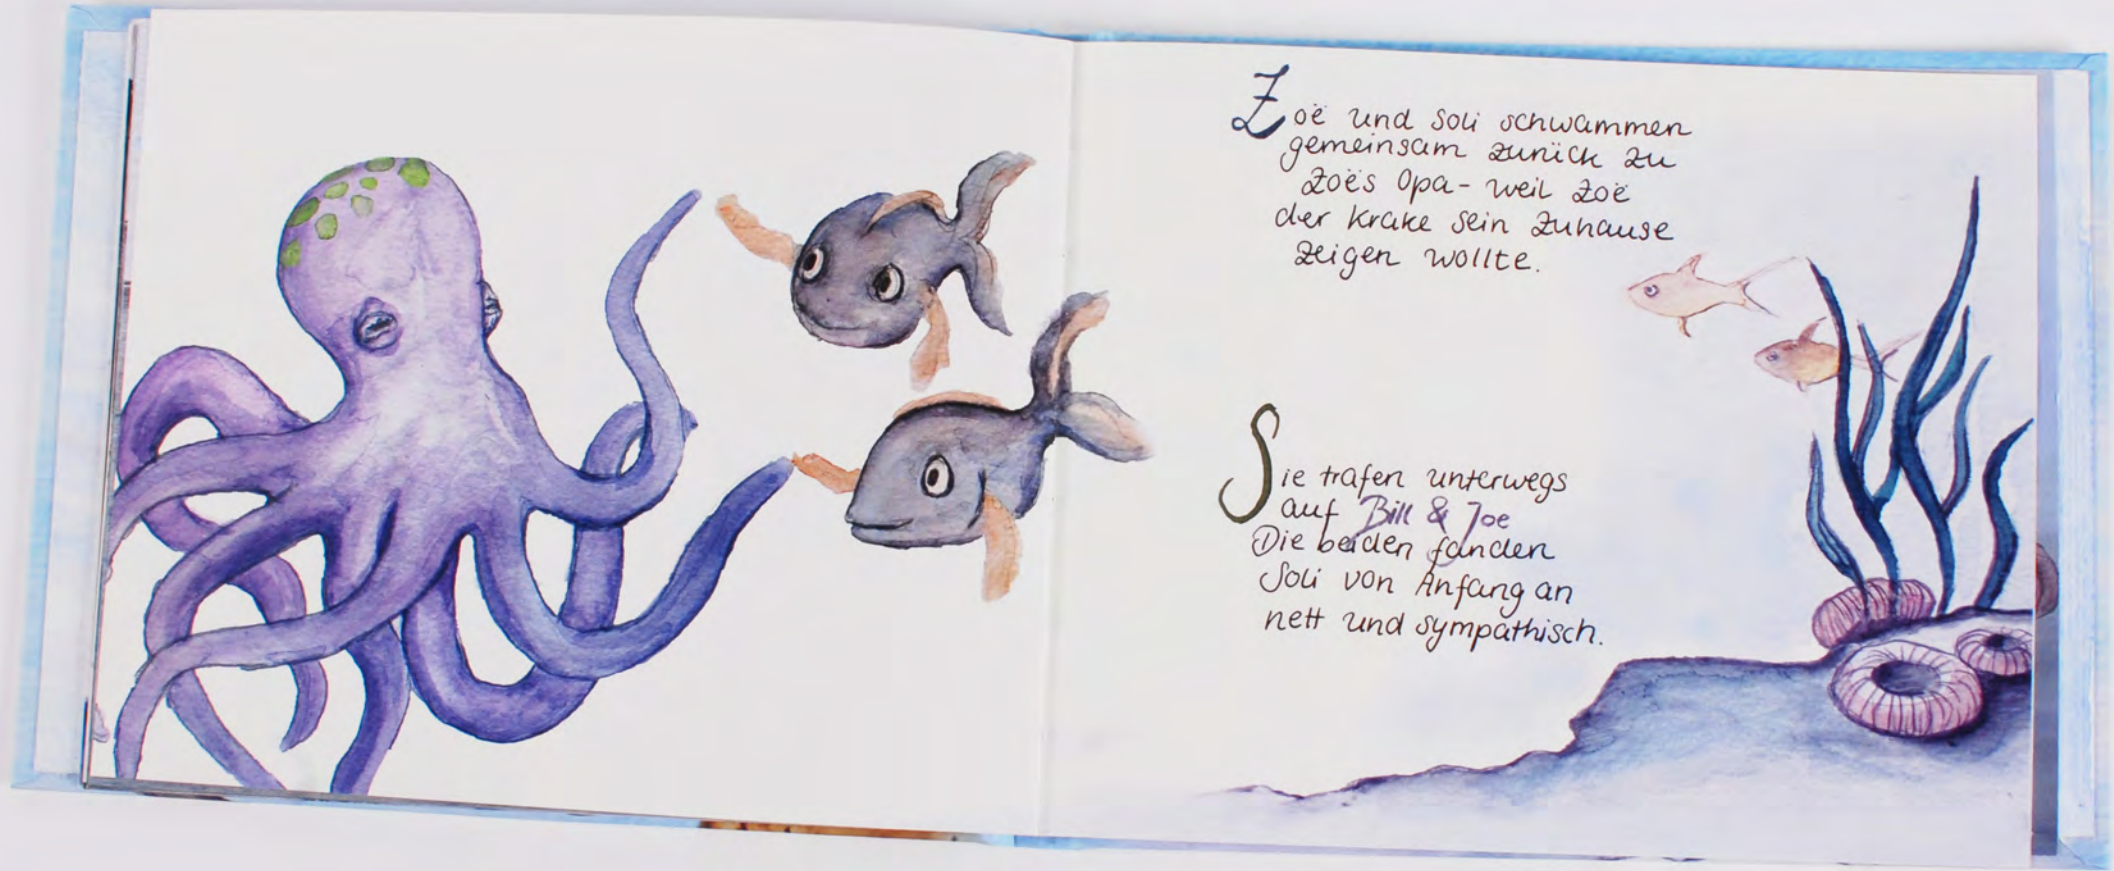 Zoë und Soli schwammen
gemeinsam zurück zu
Zoës Opa - weil Zoë
der Krake sein Zuhause
zeigen wollte.
Sie trafen unterwegs
auf Bill & Joe
Die beiden fanden
Soli von Anfang an
nett und sympathisch.